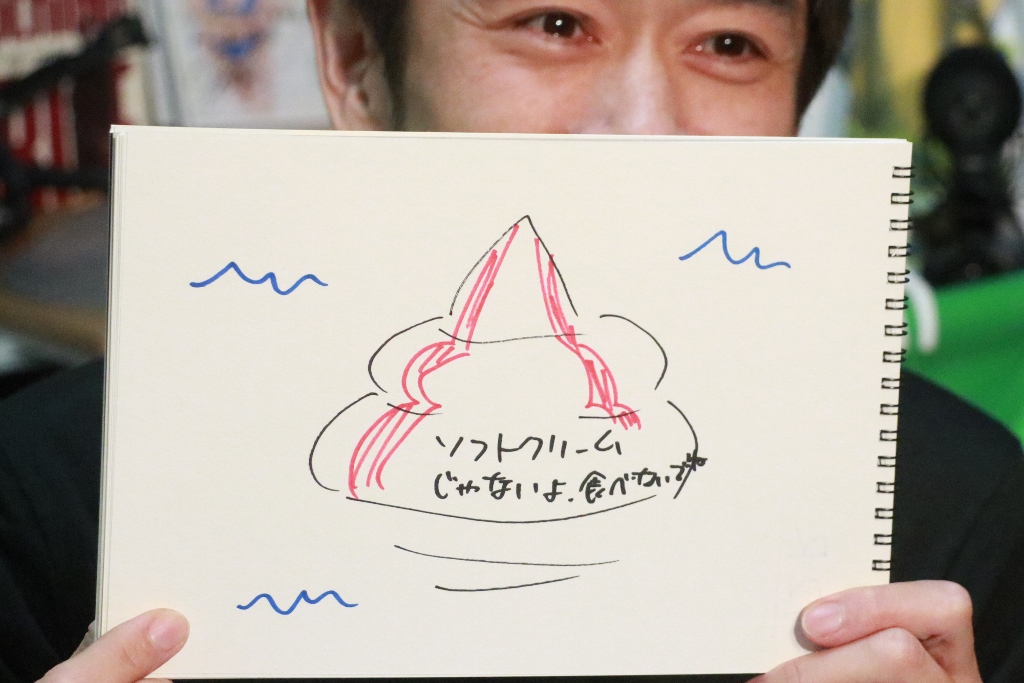 ソフトクリーム
じゃないよ.食べないでね